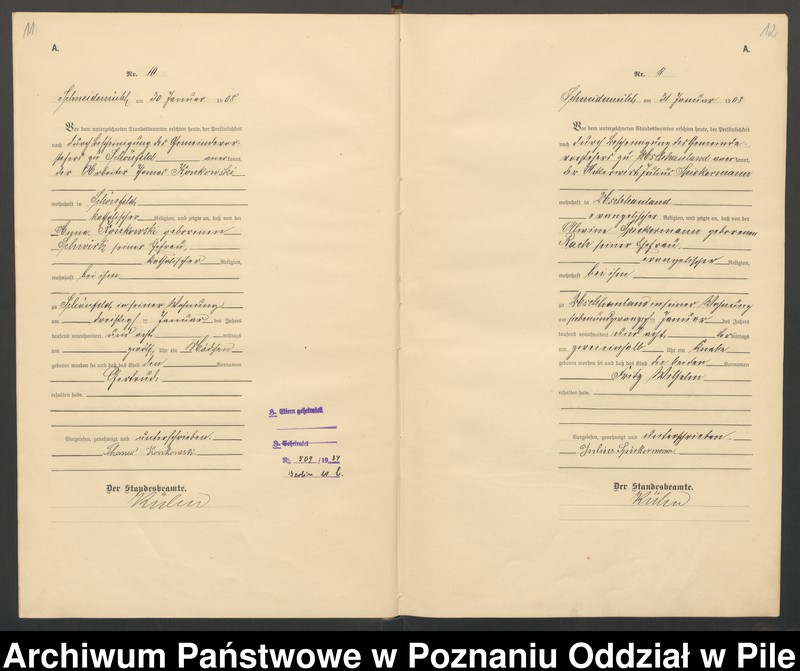 11
A.
Nr. 10
Schneidemühl, am 30 Januar 1908
Vor dem unterzeichneten Standesbeamten erschien heute, der Persönlichkeit
nach durch Bescheinigung des Gemeindevor-
stehers zu Schönfeld anerkannt,
der Arbeiter Konkowski
wohnhaft in Schönfeld,
katholischer Religion, und zeigte an, daß von der
Anna Konkowski geborenen
seiner Ehefrau,
katholischer Religion,
wohnhaft bei ihm
zu Schönfeld, in seiner Wohnung
am dreißigsten Januar des Jahres
tausend neunhundert und acht, mittags
um Uhr ein Mädchen
geboren worden sei und daß das Kind den Vornamen
Gertrud
erhalten habe.
Vorgelesen, genehmigt und unterschrieben.
Konkowski
Der Standesbeamte.
Kühn
H. Eltern geheiratet
H. Geheiratet
Nr. 509 / 19 37
Berlin
12
A.
Nr. 11
Schneidemühl, am 31 Januar 1908
Vor dem unterzeichneten Standesbeamten erschien heute, der Persönlichkeit
nach durch Bescheinigung des Gemeinde-
vorstehers zu Uschhauland anerkannt,
der Ackerwirth Julius Spickermann
wohnhaft in Uschhauland
evangelischer Religion, und zeigte an, daß von der
Alwine Spickermann geborenen
Rach seiner Ehefrau
evangelischer Religion,
wohnhaft bei ihm
zu Uschhauland in seiner Wohnung
am siebenundzwanzigsten Januar des Jahres
tausend neunhundert und acht, vormittags
um Uhr ein Knabe
geboren worden sei und daß das Kind die beiden Vornamen
Fritz Wilhelm
erhalten habe.
Vorgelesen, genehmigt und unterschrieben.
Julius Spickermann
Der Standesbeamte.
Kühn
Archiwum Państwowe w Poznaniu Oddział w Pile